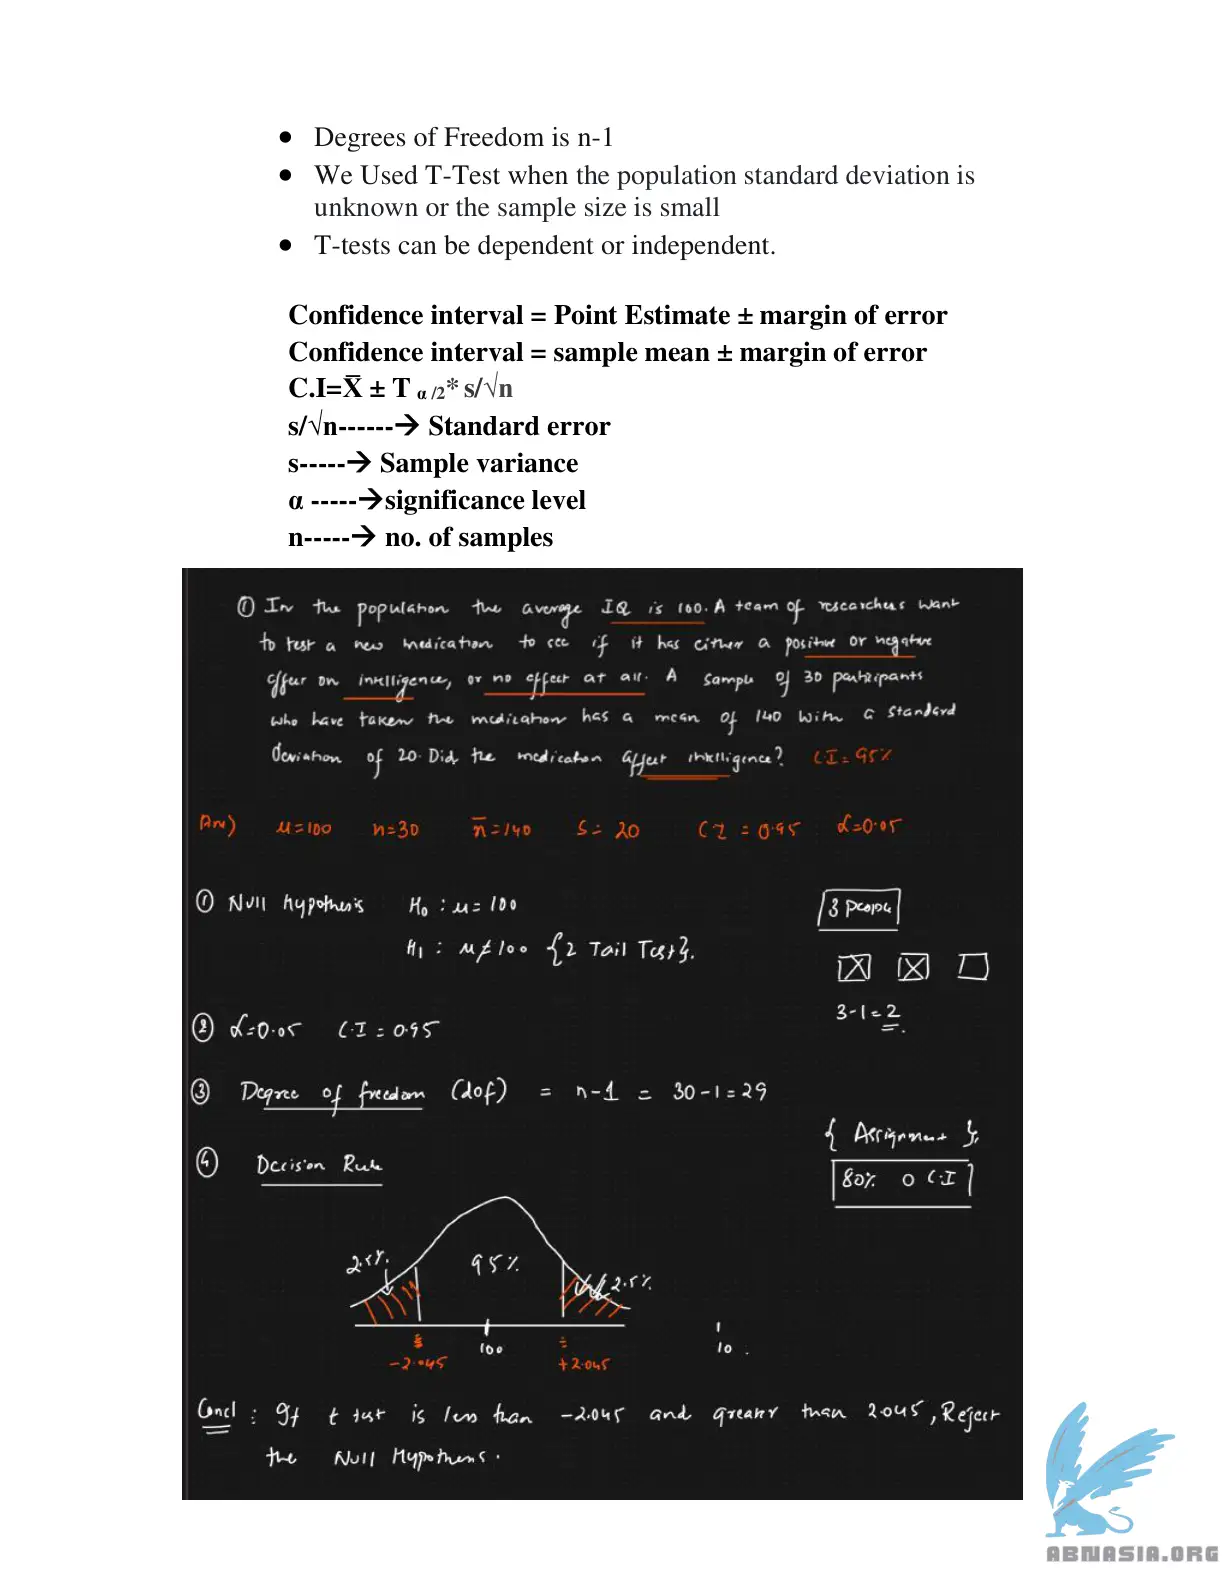 • Degrees of Freedom is n-1
• We Used T-Test when the population standard deviation is
unknown or the sample size is small
• T-tests can be dependent or independent.
Confidence interval = Point Estimate ± margin of error
Confidence interval = sample mean ± margin of error
C.I=X̅ ± T α /2* s/√n
s/√n------→ Standard error
s-----→ Sample variance
α -----→significance level
n-----→ no. of samples
① In the population the average IQ is 100. A team of researchers want
to test a new medication to see if it has either a positive or negative
effect on intelligence, or no effect at all. A sample of 30 participants
who have taken the medication has a mean of 140 with a standard
deviation of 20. Did the medication affect intelligence? CI = 95%
Ans) μ=100 n=30 x̅=140 S= 20 CI = 0.95 α=0.05
① Null Hypothesis H₀ : μ = 100
H₁ : μ ≠ 100 {2 Tail Test}.
3 people
3-1=2.
② α=0.05 C.I = 0.95
③ Degree of freedom (dof) = n-1 = 30-1=29
{ Assignment }
④ Decision Rule
80% C.I
2.5% 95% 2.5%
-2.045 100 +2.045 10.
Concl : If t test is less than -2.045 and greater than 2.045, Reject
the Null Hypothesis.
ABNASIA.ORG